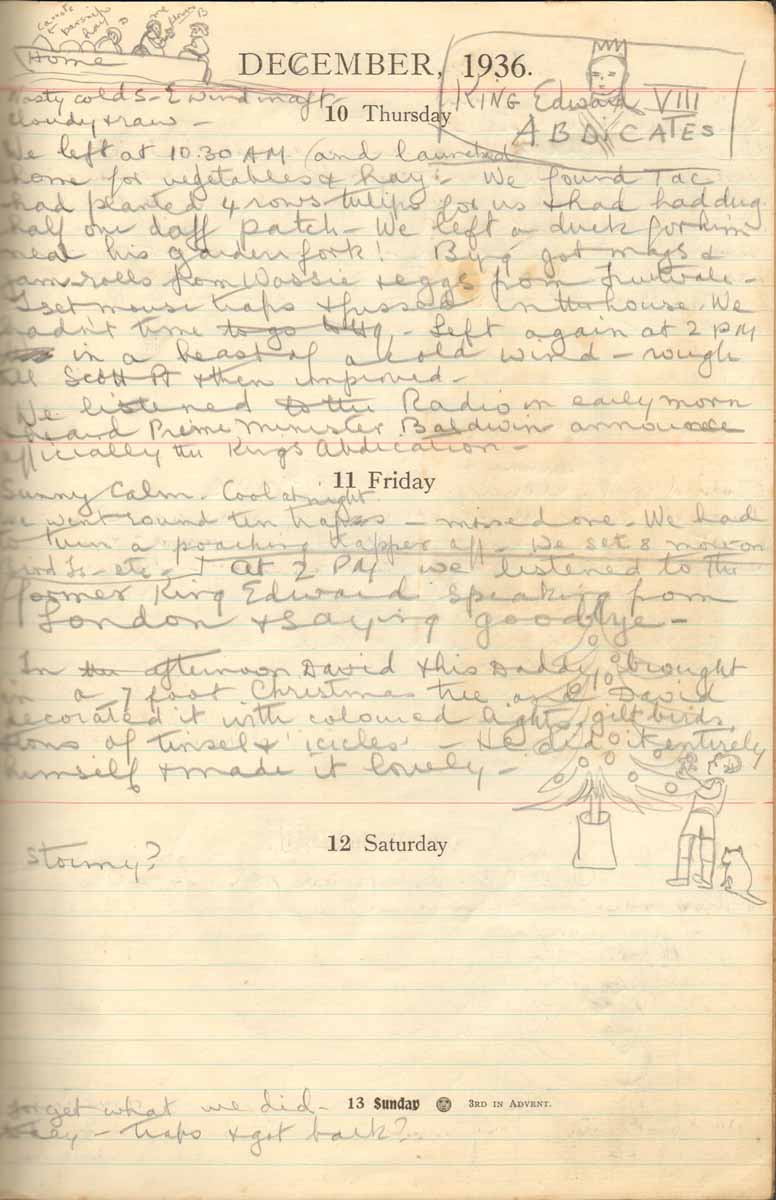 carrots
parsnips
hay
me
flowers
B
Home
DECEMBER, 1936.
KING Edward VIII
ABDICATES
Nasty cold S-E wind in aft-
cloudy & raw -
10 Thursday
We left at 10.30 AM and launched
home for vegetables & hay - We found Tac
had planted 4 rows tulips for us & had had dug
half one daff patch - We left a duck for him
near his garden fork! By got mags &
jam rolls from Wassie & eggs from Fruitvale -
I set mouse traps & fussed in the house. We
hadn't time to go to Hq - Left again at 2 PM
in a beast of a cold wind - rough
till Scott Pt & then improved -
We listened to the Radio in early morn
& heard Prime Minister Baldwin announce
officially the Kings Abdication -
11 Friday
Sunny Calm. Cool at night
We went round ten traps - missed one - We had
to turn a poaching trapper off - We set 8 more on
Bird Is - etc - At 2 PM we listened to the
former King Edward speaking from
London & saying goodbye -
In the afternoon David & his Daddy brought
in a 7 foot Christmas tree and David
decorated it with coloured lights, gilt birds,
tons of tinsel & 'icicles' - He did it entirely
himself & made it lovely -
12 Saturday
Stormy?
13 Sunday 3RD IN ADVENT.
forget what we did -
- traps & got back?